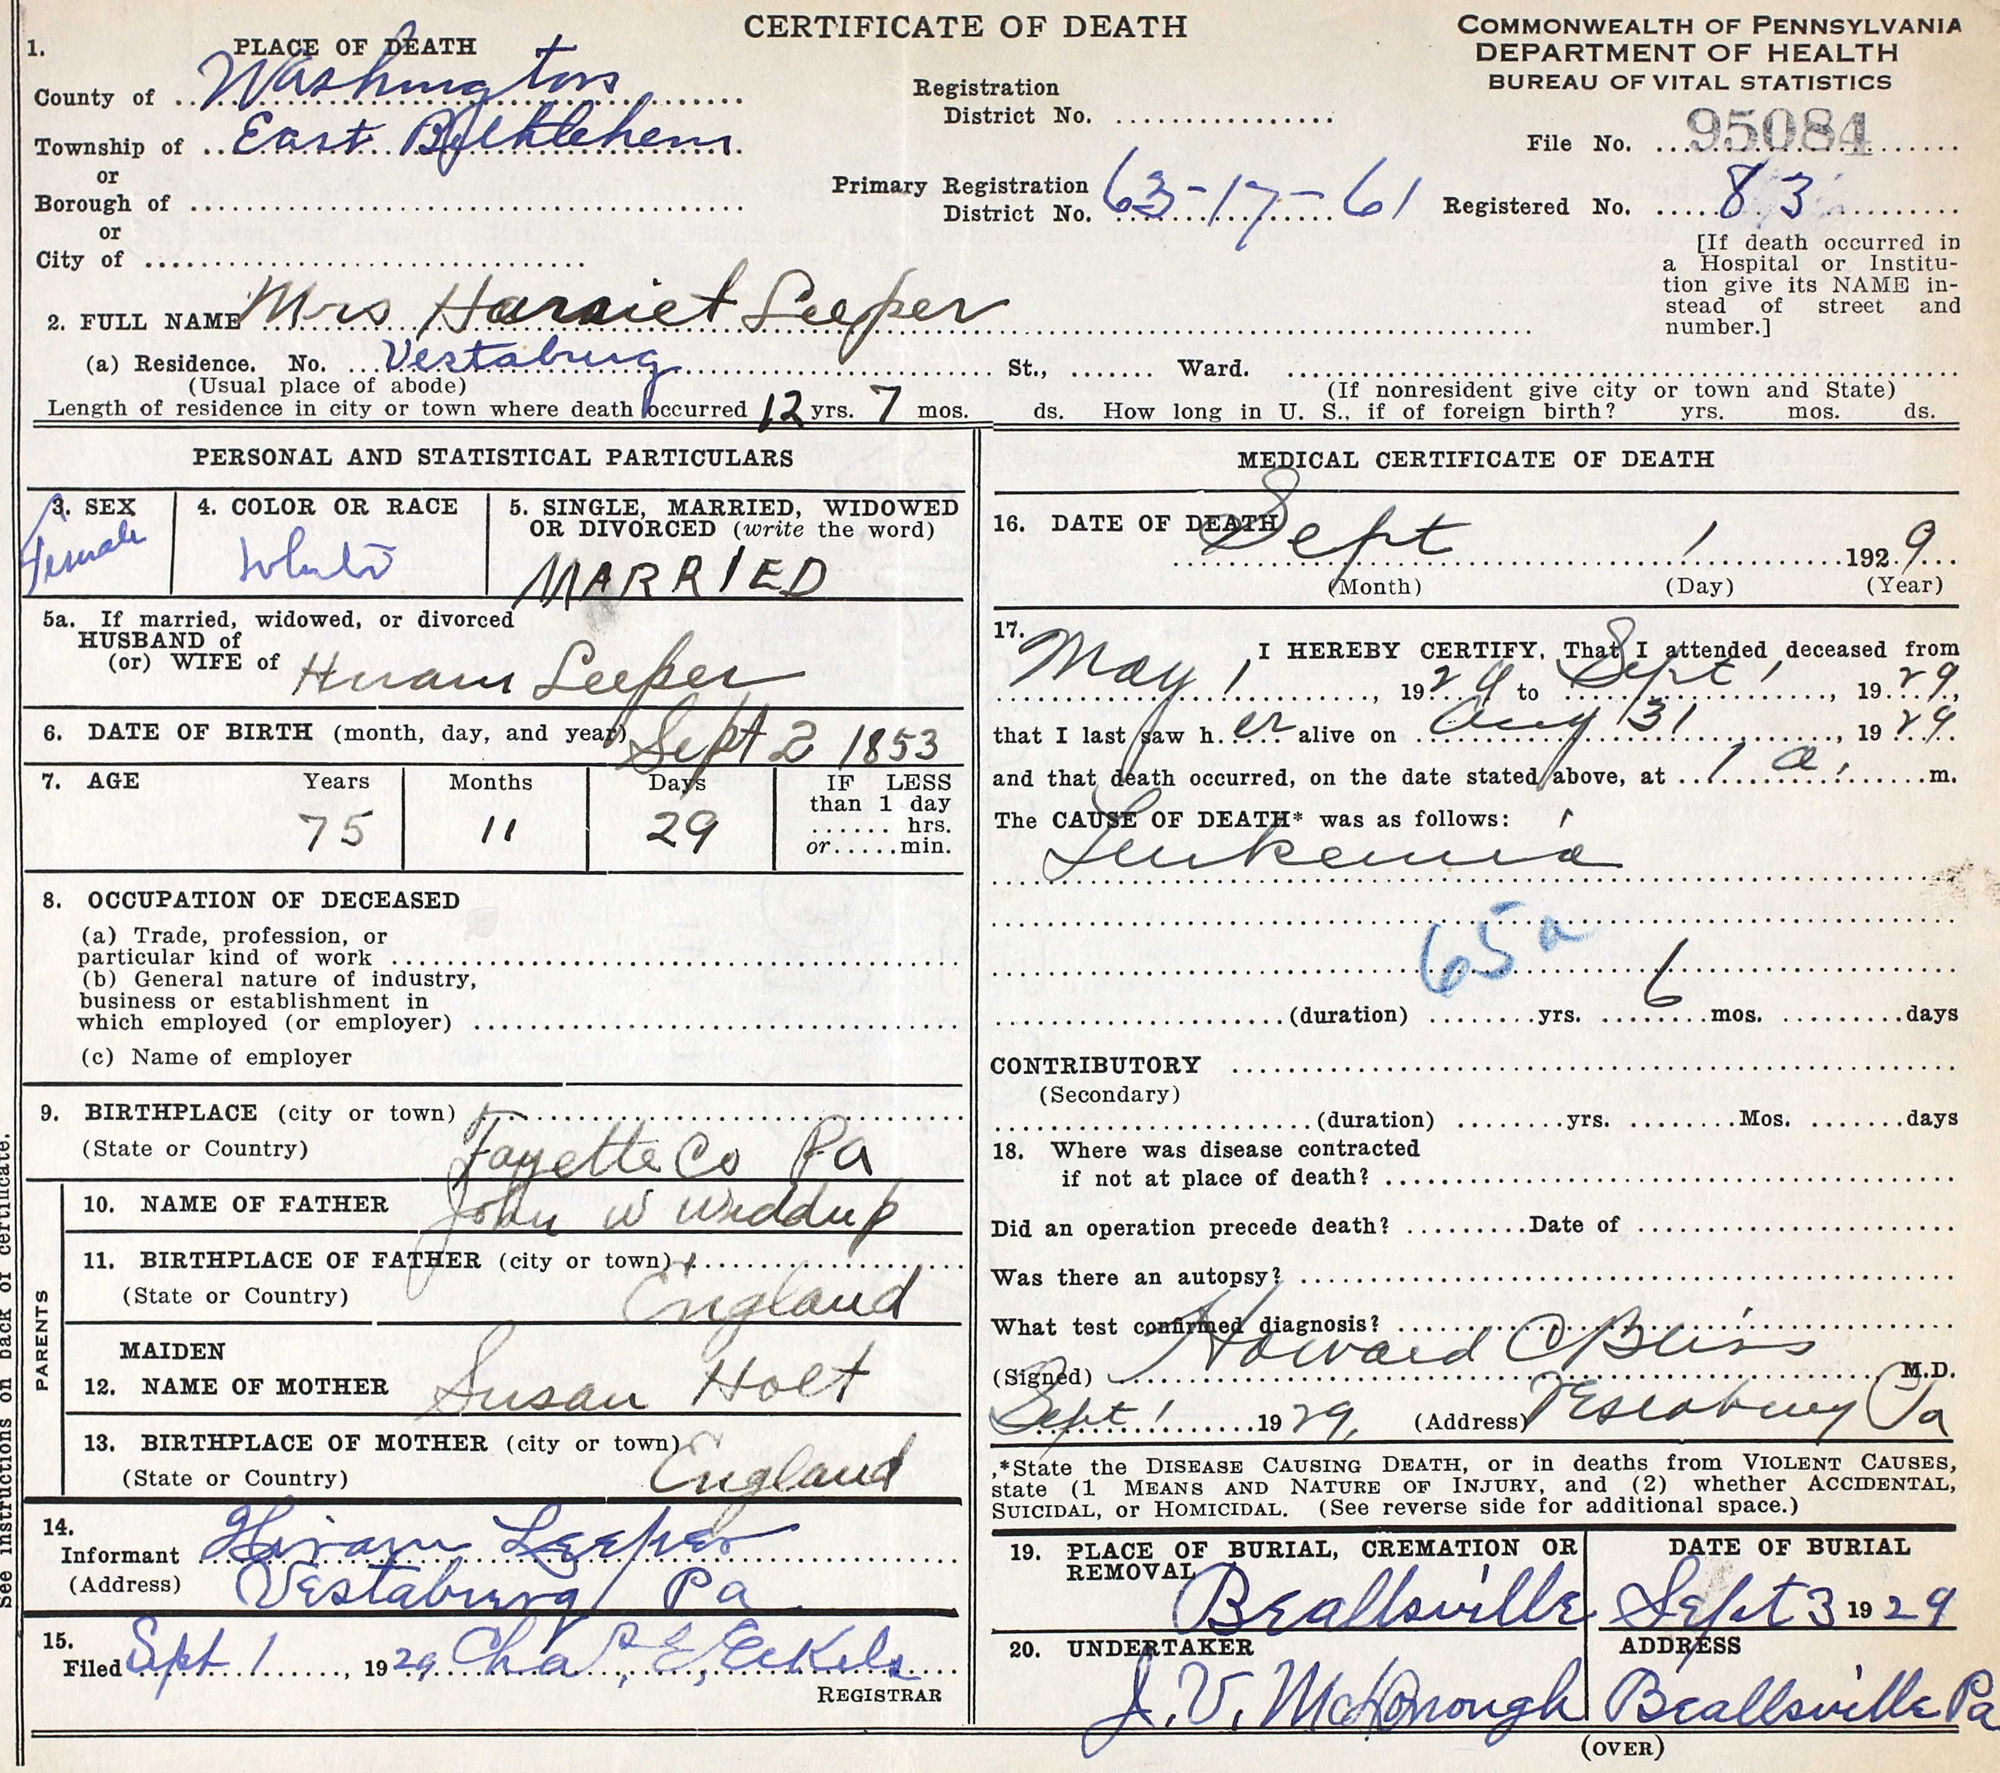 CERTIFICATE OF DEATH
COMMONWEALTH OF PENNSYLVANIA
DEPARTMENT OF HEALTH
BUREAU OF VITAL STATISTICS
1. PLACE OF DEATH
County of Washington
Township of East Bethlehem
or
Borough of
or
City of
Registration
District No.
Primary Registration
District No. 63-17-61
File No. 95084
Registered No. 83
[If death occurred in
a Hospital or Institu-
tion give its NAME in-
stead of street and
number.]
2. FULL NAME Mrs Harriet Leeper
(a) Residence. No. Vestaburg St., Ward.
(Usual place of abode) (If nonresident give city or town and State)
Length of residence in city or town where death occurred 12 yrs. 7 mos. ds. How long in U. S., if of foreign birth? yrs. mos. ds.
PERSONAL AND STATISTICAL PARTICULARS
3. SEX
Female
4. COLOR OR RACE
White
5. SINGLE, MARRIED, WIDOWED
OR DIVORCED (write the word)
MARRIED
5a. If married, widowed, or divorced
HUSBAND of
(or) WIFE of Hiram Leeper
6. DATE OF BIRTH (month, day, and year) Sept 2 1853
7. AGE Years Months Days IF LESS
than 1 day
hrs.
or min.
75 11 29
8. OCCUPATION OF DECEASED
(a) Trade, profession, or
particular kind of work
(b) General nature of industry,
business or establishment in
which employed (or employer)
(c) Name of employer
9. BIRTHPLACE (city or town)
(State or Country) Fayette Co Pa
PARENTS
10. NAME OF FATHER John W Widdup
11. BIRTHPLACE OF FATHER (city or town)
(State or Country) England
MAIDEN
12. NAME OF MOTHER Susan Holt
13. BIRTHPLACE OF MOTHER (city or town)
(State or Country) England
14.
Informant Hiram Leeper
(Address) Vestaburg Pa
15.
Filed Sept 1, 1929 Chas. E. Eckels
REGISTRAR
See instructions on back of certificate.
MEDICAL CERTIFICATE OF DEATH
16. DATE OF DEATH Sept 1 1929
(Month) (Day) (Year)
17.
I HEREBY CERTIFY, That I attended deceased from
May 1, 1929 to Sept 1, 1929,
that I last saw her alive on Aug 31, 1929
and that death occurred, on the date stated above, at 1 a. m.
The CAUSE OF DEATH* was as follows:
Leukemia
65a
(duration) yrs. 6 mos. days
CONTRIBUTORY
(Secondary)
(duration) yrs. Mos. days
18. Where was disease contracted
if not at place of death?
Did an operation precede death? Date of
Was there an autopsy?
What test confirmed diagnosis?
(Signed) Howard C Bliss M.D.
Sept 1 1929, (Address) Vestaburg Pa
*State the DISEASE CAUSING DEATH, or in deaths from VIOLENT CAUSES,
state (1 MEANS AND NATURE OF INJURY, and (2) whether ACCIDENTAL,
SUICIDAL, or HOMICIDAL. (See reverse side for additional space.)
19. PLACE OF BURIAL, CREMATION OR
REMOVAL
Beallsville
DATE OF BURIAL
Sept 3 1929
20. UNDERTAKER
J. V. McDonough
ADDRESS
Beallsville Pa
(OVER)